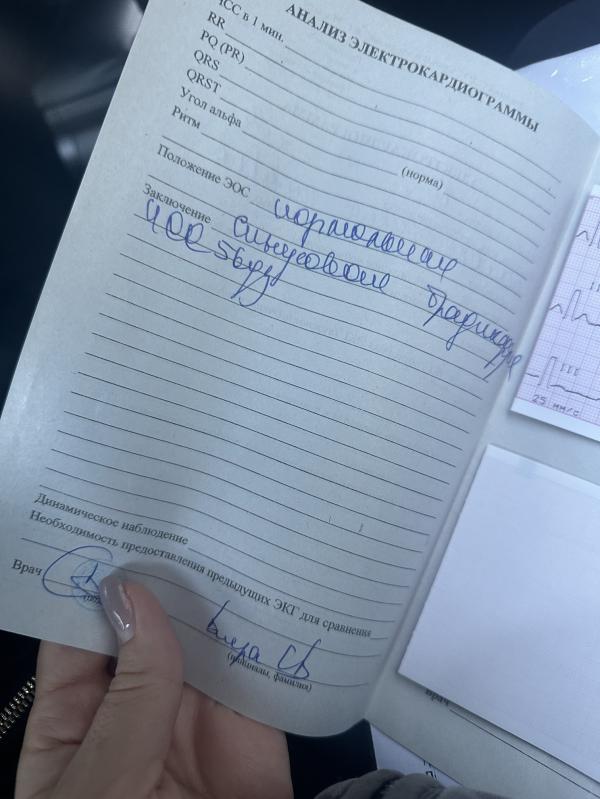 АНАЛИЗ ЭЛЕКТРОКАРДИОГРАММЫ
ЧСС в 1 мин.
RR
PQ (PR)
QRS
QRST
Угол альфа
(норма)
Ритм
Положение ЭОС нормальная
Заключение синусовая брадикардия
ЧСС 56уд
Динамическое наблюдение
Необходимость предоставления предыдущих ЭКГ для сравнения
Врач
(инициалы, фамилия)
25 мм/с
Врач